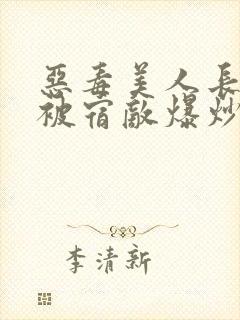 惡毒美人長
被宿敵爆炒
李清新